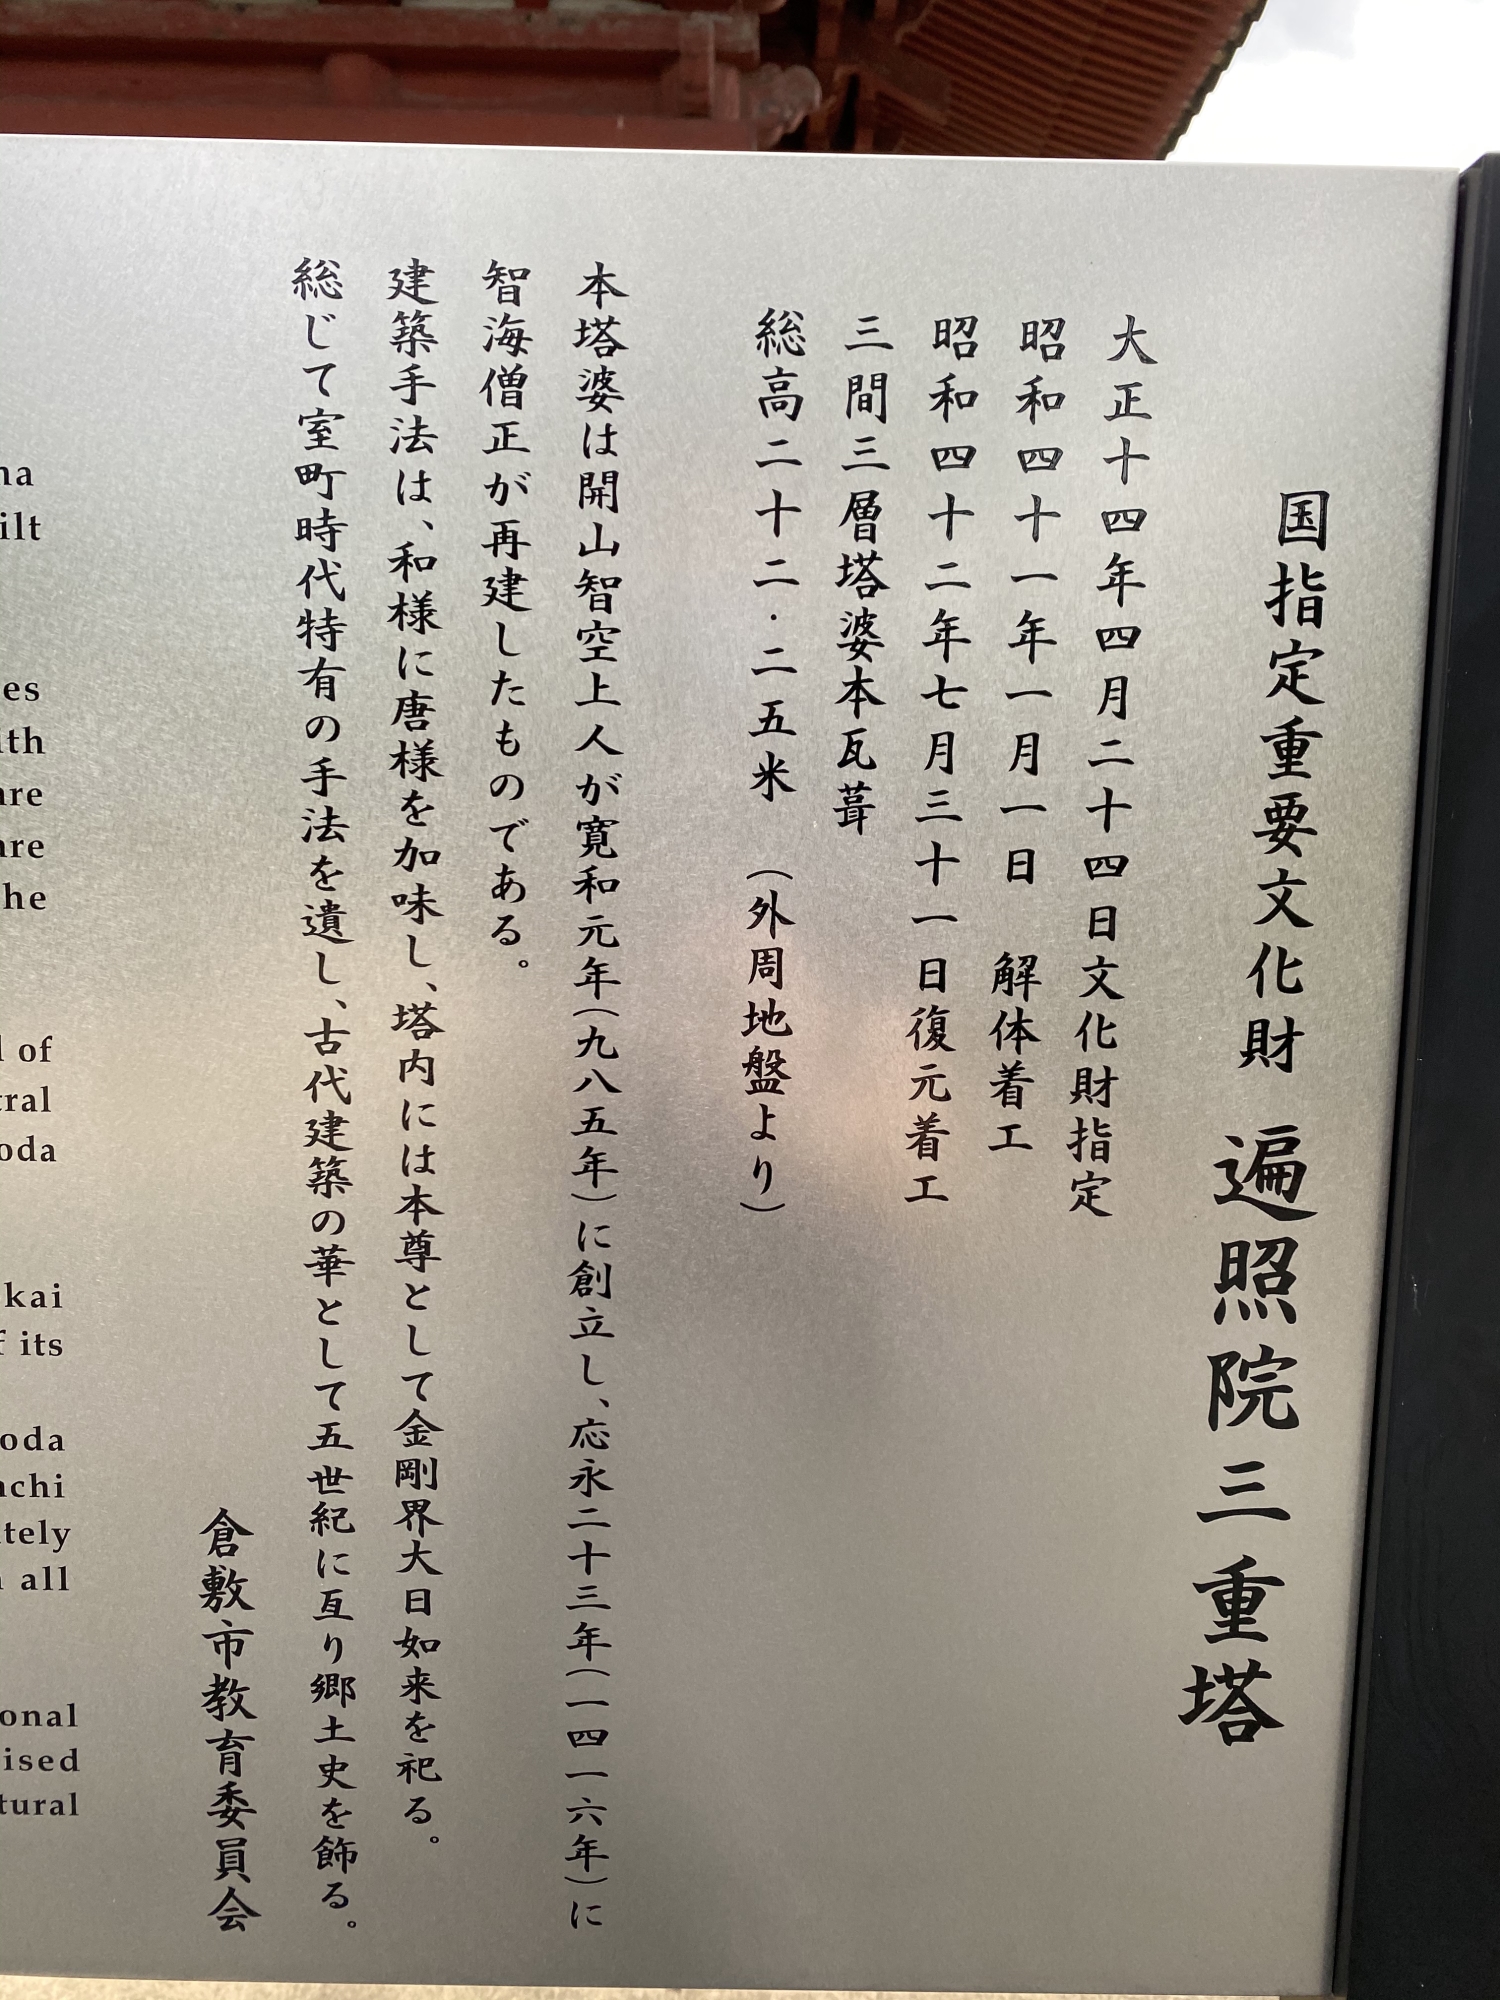 国指定重要文化財 遍照院三重塔
大正十四年四月二十四日文化財指定
昭和四十一年一月一日 解体着工
昭和四十二年七月三十一日復元着工
三間三層塔婆本瓦葺
総高二十二・二五米 (外周地盤より)
本塔婆は開山智空上人が寛和元年(九八五年)に創立し、応永二十三年(一四一六年)に
智海僧正が再建したものである。
建築手法は、和様に唐様を加味し、塔内には本尊として金剛界大日如来を祀る。
総じて室町時代特有の手法を遺し、古代建築の華として五世紀に亙り郷土史を飾る。
倉敷市教育委員会
na
ilt
es
ith
are
are
he
l of
tral
oda
kai
f its
oda
achi
tely
n all
onal
ised
tural